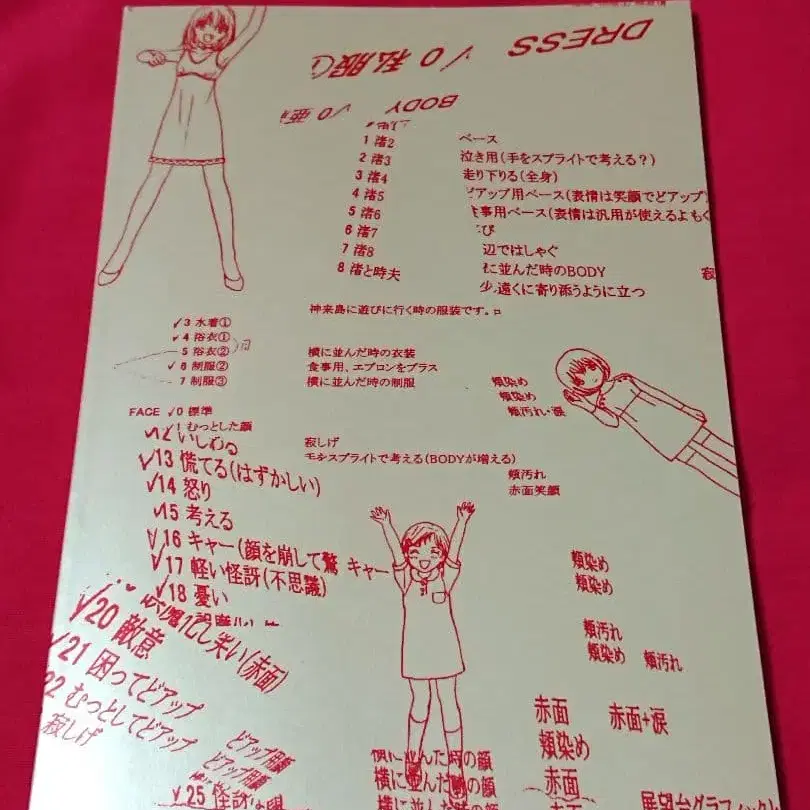 DRESS √0 私服
BODY √0
1 渚2 ベース
2 渚3 泣き用(手をスプライトで考える?)
3 渚4 走り下りる(全身)
4 渚5 どアップ用ベース(表情は笑顔でどアップ)
5 渚6 食事用ベース(表情は汎用が使えるよも
6 渚7
7 渚8 辺ではしゃぐ
8 渚と時夫 に並んだ時のBODY 寂
少 遠くに寄り添うように立つ
神来島に遊びに行く時の服装です。
√3 水着①
√4 浴衣①
5 浴衣② 横に並んだ時の衣装
√6 制服② 食事用、エプロンをプラス
7 制服③ 横に並んだ時の制服 頬染め
頬染め
頬汚れ・涙
FACE √0 標準
むっとした顔
√12 いじわる 寂しげ
√13 慌てる(はずかしい) 手をスプライトで考える(BODYが増える)
√14 怒り 頬汚れ
赤面笑顔
√15 考える
√16 キャー(顔を崩して驚 キャー 頬染め
√17 軽い怪訝(不思議) 頬染め
√18 憂い
し笑い(赤面) 頬汚れ
√20 敵意 頬染め 頬汚れ
√21 困ってどアップ 赤面 赤面+涙
22 むっとしてどアップ どアップ用顔 頬染め
寂しげ どアップ用顔 横に並んだ時の顔
横に並んだ時の顔 赤面
√25 怪訝な 横に並んだ時の顔 赤面